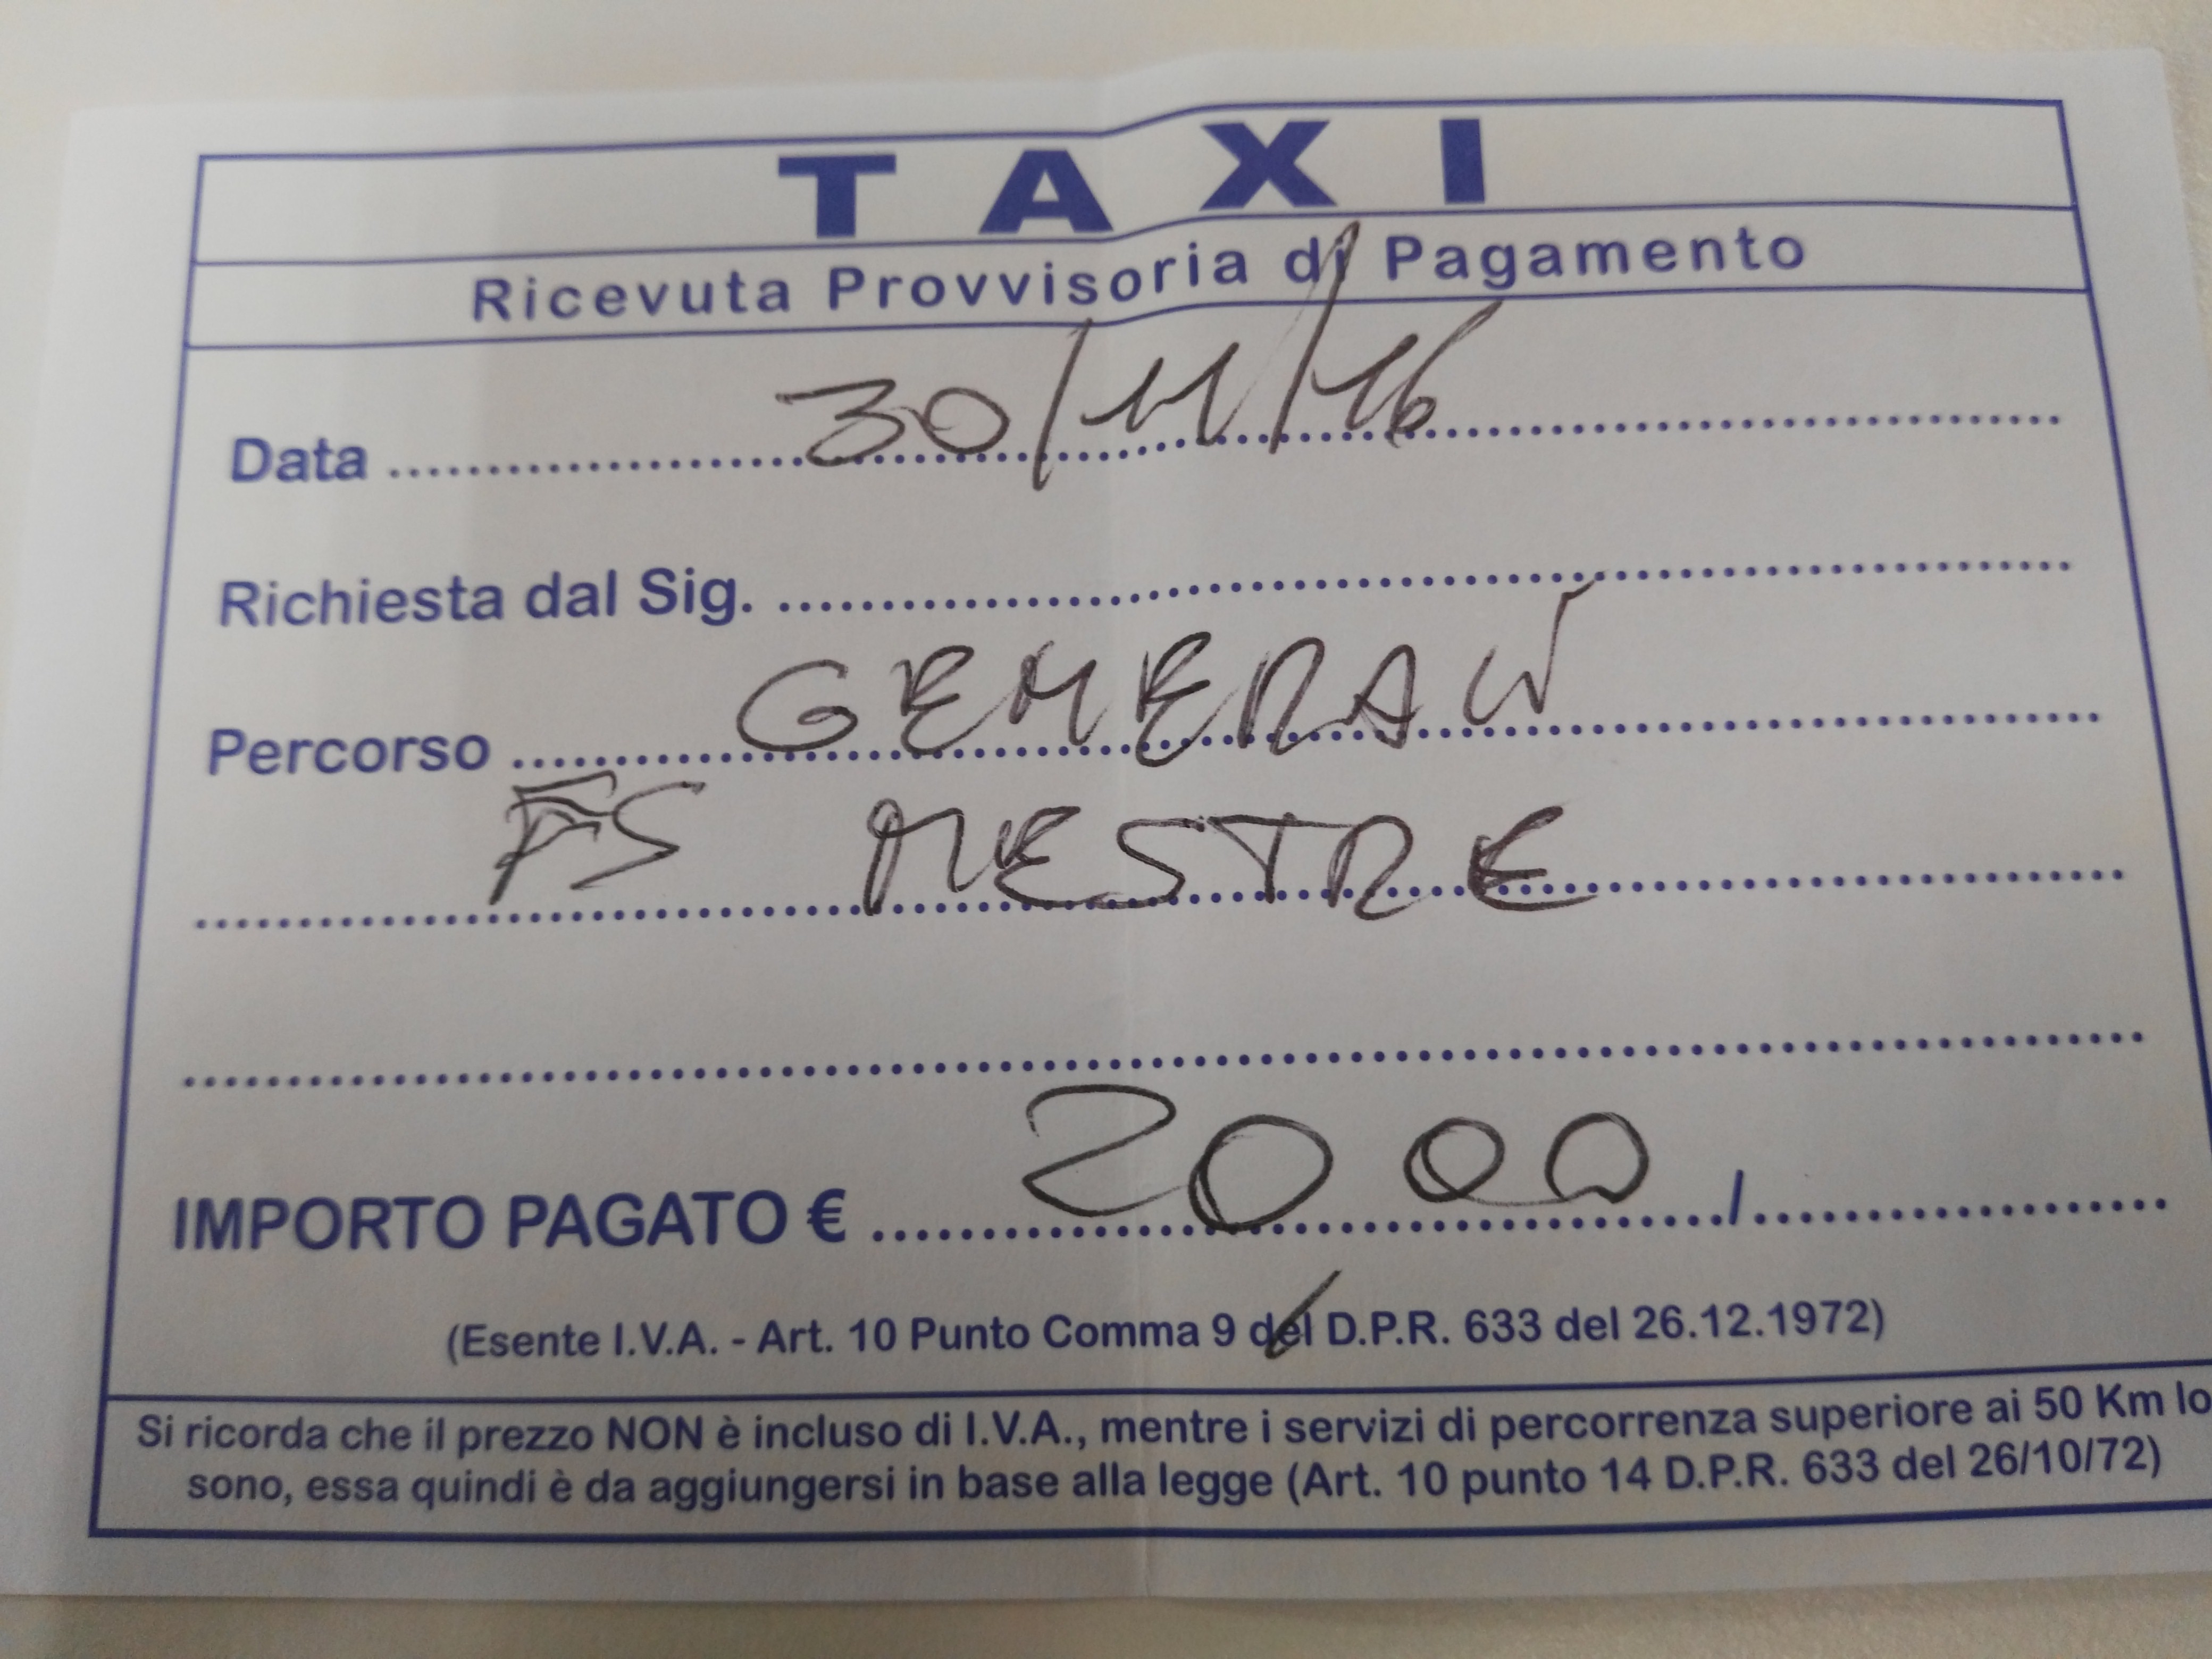 TAXI
Ricevuta Provvisoria di Pagamento
Data 30/11/16
Richiesta dal Sig.
Percorso GENERALI
FS MESTRE
IMPORTO PAGATO € 20 00 /
(Esente I.V.A. - Art. 10 Punto Comma 9 del D.P.R. 633 del 26.12.1972)
Si ricorda che il prezzo NON è incluso di I.V.A., mentre i servizi di percorrenza superiore ai 50 Km lo
sono, essa quindi è da aggiungersi in base alla legge (Art. 10 punto 14 D.P.R. 633 del 26/10/72)